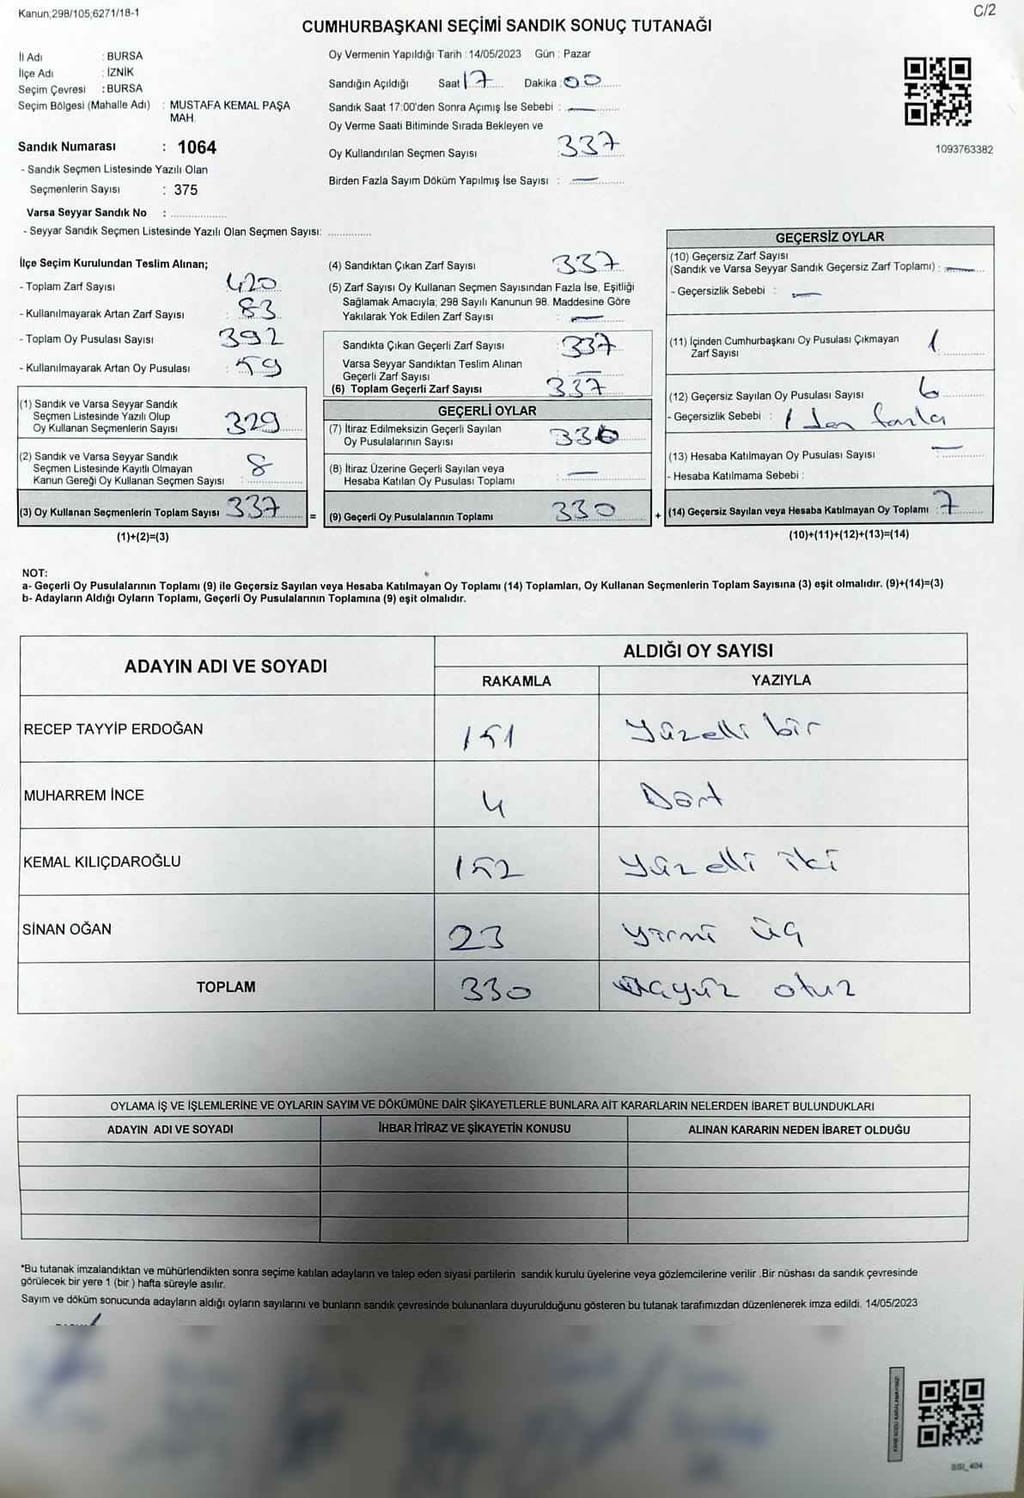 Kanun;298/105,6271/18-1
C/2
CUMHURBAŞKANI SEÇİMİ SANDIK SONUÇ TUTANAĞI
İl Adı : BURSA
İlçe Adı : İZNİK
Seçim Çevresi : BURSA
Seçim Bölgesi (Mahalle Adı) : MUSTAFA KEMAL PAŞA
MAH.
Sandık Numarası : 1064
- Sandık Seçmen Listesinde Yazılı Olan
Seçmenlerin Sayısı : 375
Varsa Seyyar Sandık No :
- Seyyar Sandık Seçmen Listesinde Yazılı Olan Seçmen Sayısı:
Oy Vermenin Yapıldığı Tarih : 14/05/2023 Gün : Pazar
Sandığın Açıldığı Saat 17 Dakika : 00
Sandık Saat 17:00'den Sonra Açımış İse Sebebi : —
Oy Verme Saati Bitiminde Sırada Bekleyen ve
Oy Kullandırılan Seçmen Sayısı : 337
Birden Fazla Sayım Döküm Yapılmış İse Sayısı : —
1093763382
İlçe Seçim Kurulundan Teslim Alınan;
- Toplam Zarf Sayısı : 420
- Kullanılmayarak Artan Zarf Sayısı : 83
- Toplam Oy Pusulası Sayısı : 392
- Kullanılmayarak Artan Oy Pusulası : 59
(1) Sandık ve Varsa Seyyar Sandık
Seçmen Listesinde Yazılı Olup
Oy Kullanan Seçmenlerin Sayısı : 329
(2) Sandık ve Varsa Seyyar Sandık
Seçmen Listesinde Kayıtlı Olmayan
Kanun Gereği Oy Kullanan Seçmen Sayısı : 8
(3) Oy Kullanan Seçmenlerin Toplam Sayısı : 337
(1)+(2)=(3)
(4) Sandıktan Çıkan Zarf Sayısı : 337
(5) Zarf Sayısı Oy Kullanan Seçmen Sayısından Fazla İse, Eşitliği
Sağlamak Amacıyla; 298 Sayılı Kanunun 98. Maddesine Göre
Yakılarak Yok Edilen Zarf Sayısı : —
Sandıkta Çıkan Geçerli Zarf Sayısı : 337
Varsa Seyyar Sandıktan Teslim Alınan
Geçerli Zarf Sayısı : —
(6) Toplam Geçerli Zarf Sayısı : 337
GEÇERLİ OYLAR
(7) İtiraz Edilmeksizin Geçerli Sayılan
Oy Pusulalarının Sayısı : 330
(8) İtiraz Üzerine Geçerli Sayılan veya
Hesaba Katılan Oy Pusulası Toplamı : —
= (9) Geçerli Oy Pusulalarının Toplamı : 330 +
GEÇERSİZ OYLAR
(10) Geçersiz Zarf Sayısı
(Sandık ve Varsa Seyyar Sandık Geçersiz Zarf Toplamı) : —
- Geçersizlik Sebebi : —
(11) İçinden Cumhurbaşkanı Oy Pusulası Çıkmayan
Zarf Sayısı : 1
(12) Geçersiz Sayılan Oy Pusulası Sayısı : 6
- Geçersizlik Sebebi : 1 den fazla
(13) Hesaba Katılmayan Oy Pusulası Sayısı : —
- Hesaba Katılmama Sebebi :
(14) Geçersiz Sayılan veya Hesaba Katılmayan Oy Toplamı : 7
(10)+(11)+(12)+(13)=(14)
NOT:
a- Geçerli Oy Pusulalarının Toplamı (9) ile Geçersiz Sayılan veya Hesaba Katılmayan Oy Toplamı (14) Toplamları, Oy Kullanan Seçmenlerin Toplam Sayısına (3) eşit olmalıdır. (9)+(14)=(3)
b- Adayların Aldığı Oyların Toplamı, Geçerli Oy Pusulalarının Toplamına (9) eşit olmalıdır.
ADAYIN ADI VE SOYADI
ALDIĞI OY SAYISI
RAKAMLA YAZIYLA
RECEP TAYYİP ERDOĞAN 151 Yüzelli bir
MUHARREM İNCE 4 Dört
KEMAL KILIÇDAROĞLU 152 Yüz elli iki
SİNAN OĞAN 23 yirmi üç
TOPLAM 330 üçyüz otuz
OYLAMA İŞ VE İŞLEMLERİNE VE OYLARIN SAYIM VE DÖKÜMÜNE DAİR ŞİKAYETLERLE BUNLARA AİT KARARLARIN NELERDEN İBARET BULUNDUKLARI
ADAYIN ADI VE SOYADI İHBAR İTİRAZ VE ŞİKAYETİN KONUSU ALINAN KARARIN NEDEN İBARET OLDUĞU
*Bu tutanak imzalandıktan ve mühürlendikten sonra seçime katılan adayların ve talep eden siyasi partilerin sandık kurulu üyelerine veya gözlemcilerine verilir .Bir nüshası da sandık çevresinde
görülecek bir yere 1 (bir ) hafta süreyle asılır.
Sayım ve döküm sonucunda adayların aldığı oyların sayılarını ve bunların sandık çevresinde bulunanlara duyurulduğunu gösteren bu tutanak tarafımızdan düzenlenerek imza edildi. 14/05/2023